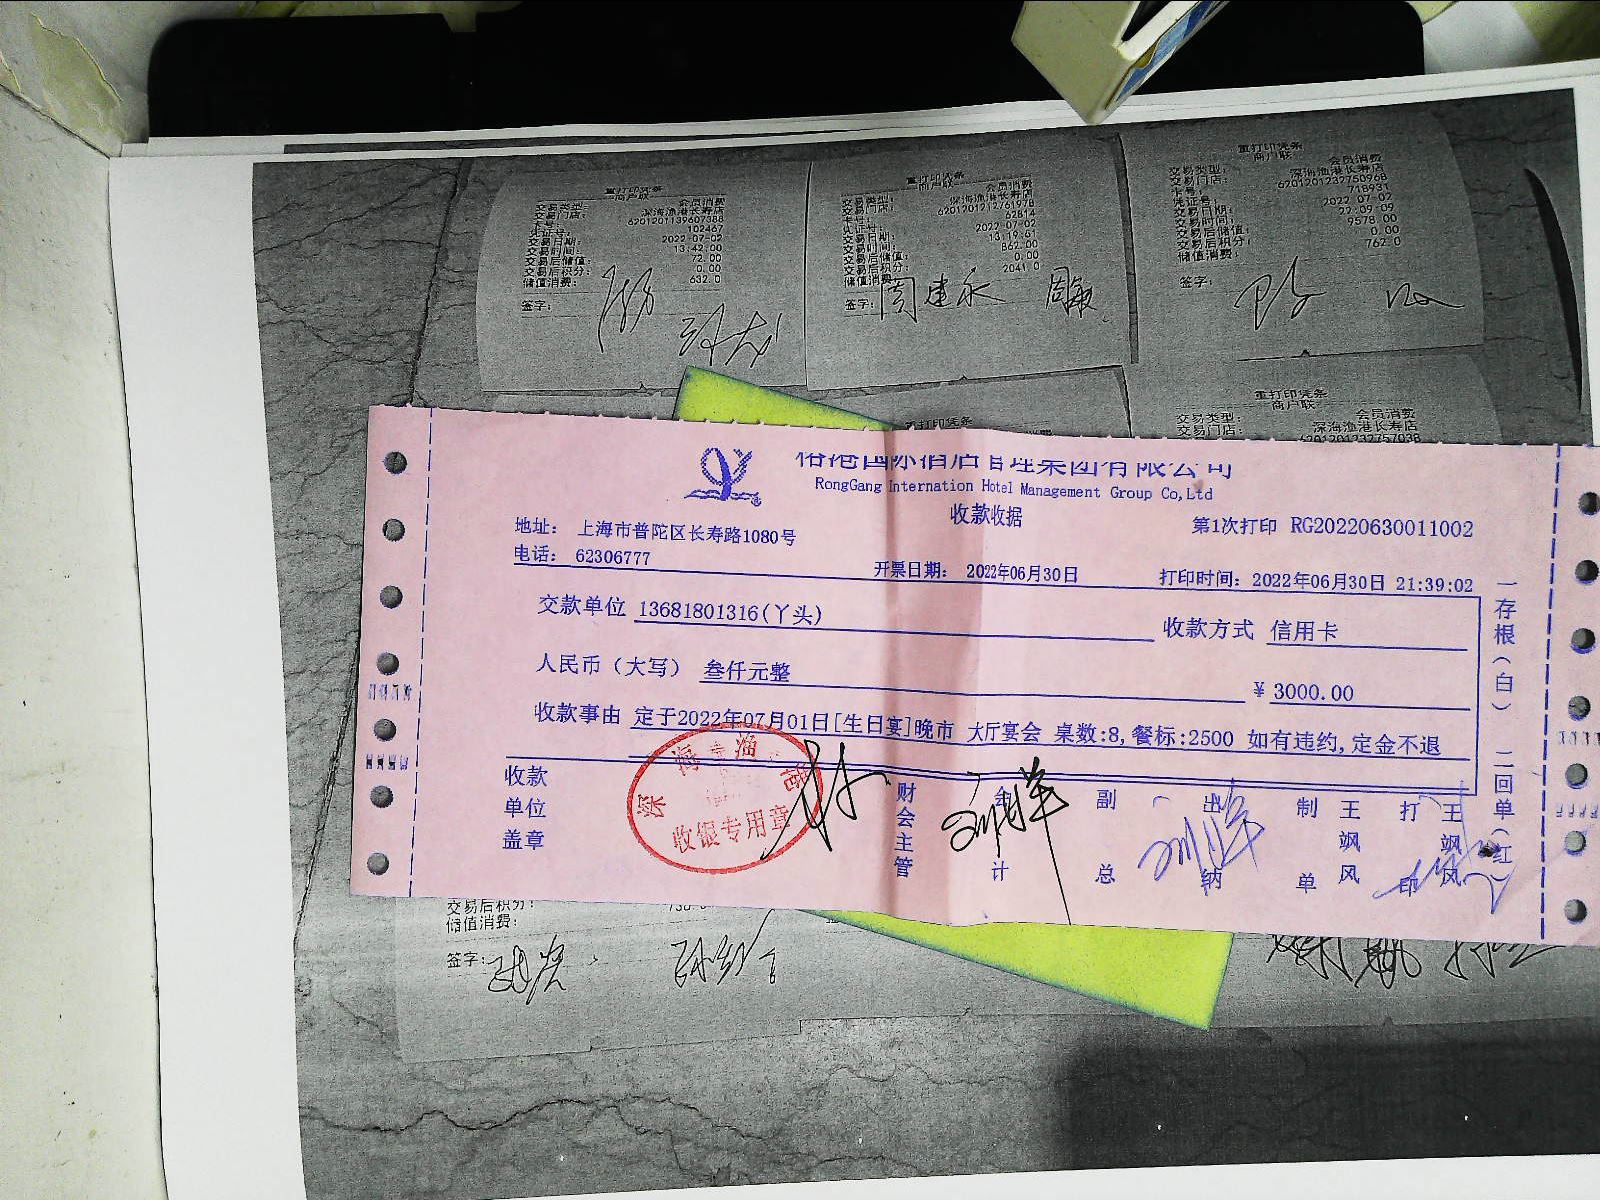 重打印凭条
商户联
交易类型: 会员消费
交易门店: 深海渔港长寿店
卡号: 6201201139607388
凭证号: 102467
交易日期: 2022-07-02
交易时间: 13:42:00
交易后储值: 72.00
交易后积分: 0.00
储值消费: 632.0
签字:
重打印凭条
商户联
交易类型: 会员消费
交易门店: 深海渔港长寿店
卡号: 6201201212761978
凭证号: 62814
交易日期: 2022-07-02
交易时间: 13:19:51
交易后储值: 862.00
交易后积分: 0.00
储值消费: 2041.0
签字: 周建永
重打印凭条
商户联
交易类型: 会员消费
交易门店: 深海渔港长寿店
卡号: 6201201232750968
凭证号: 718931
交易日期: 2022-07-02
交易时间: 22:09:09
交易后储值: 9578.00
交易后积分: 0.00
储值消费: 762.0
签字:
重打印凭条
重打印凭条
商户联
交易类型: 会员消费
交易门店: 深海渔港长寿店
6201201232757038
榕港国际酒店管理集团有限公司
RongGang International Hotel Management Group Co,Ltd
收款收据
第1次打印 RG20220630011002
地址: 上海市普陀区长寿路1080号
电话: 62306777
开票日期: 2022年06月30日
打印时间: 2022年06月30日 21:39:02
交款单位 13681801316(丫头)
收款方式 信用卡
人民币(大写) 叁仟元整
¥ 3000.00
收款事由 定于2022年07月01日[生日宴]晚市 大厅宴会 桌数:8,餐标:2500 如有违约,定金不退
收款单位盖章
深海渔港
收银专用章
财会主管
会计
副总
出纳
制单
王飒风
打印
王飒风
一存根(白) 二回单(红)
交易后积分:
储值消费:
签字: